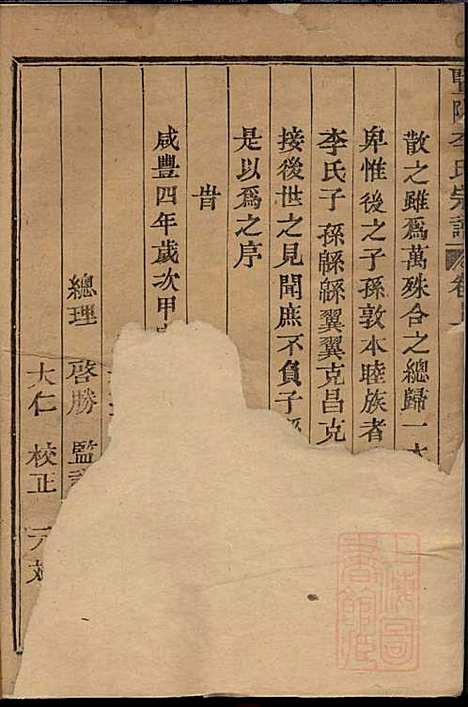 暨陽李氏宗譜 卷
散之雖爲萬殊合之總歸一本
卑惟後之子孫敦本睦族者
李氏子孫緜緜翼翼克昌克
接後世之見聞庶不負子孫
是以爲之序
旹
咸豐四年歲次甲
總理 啓勝 監
大仁 校正